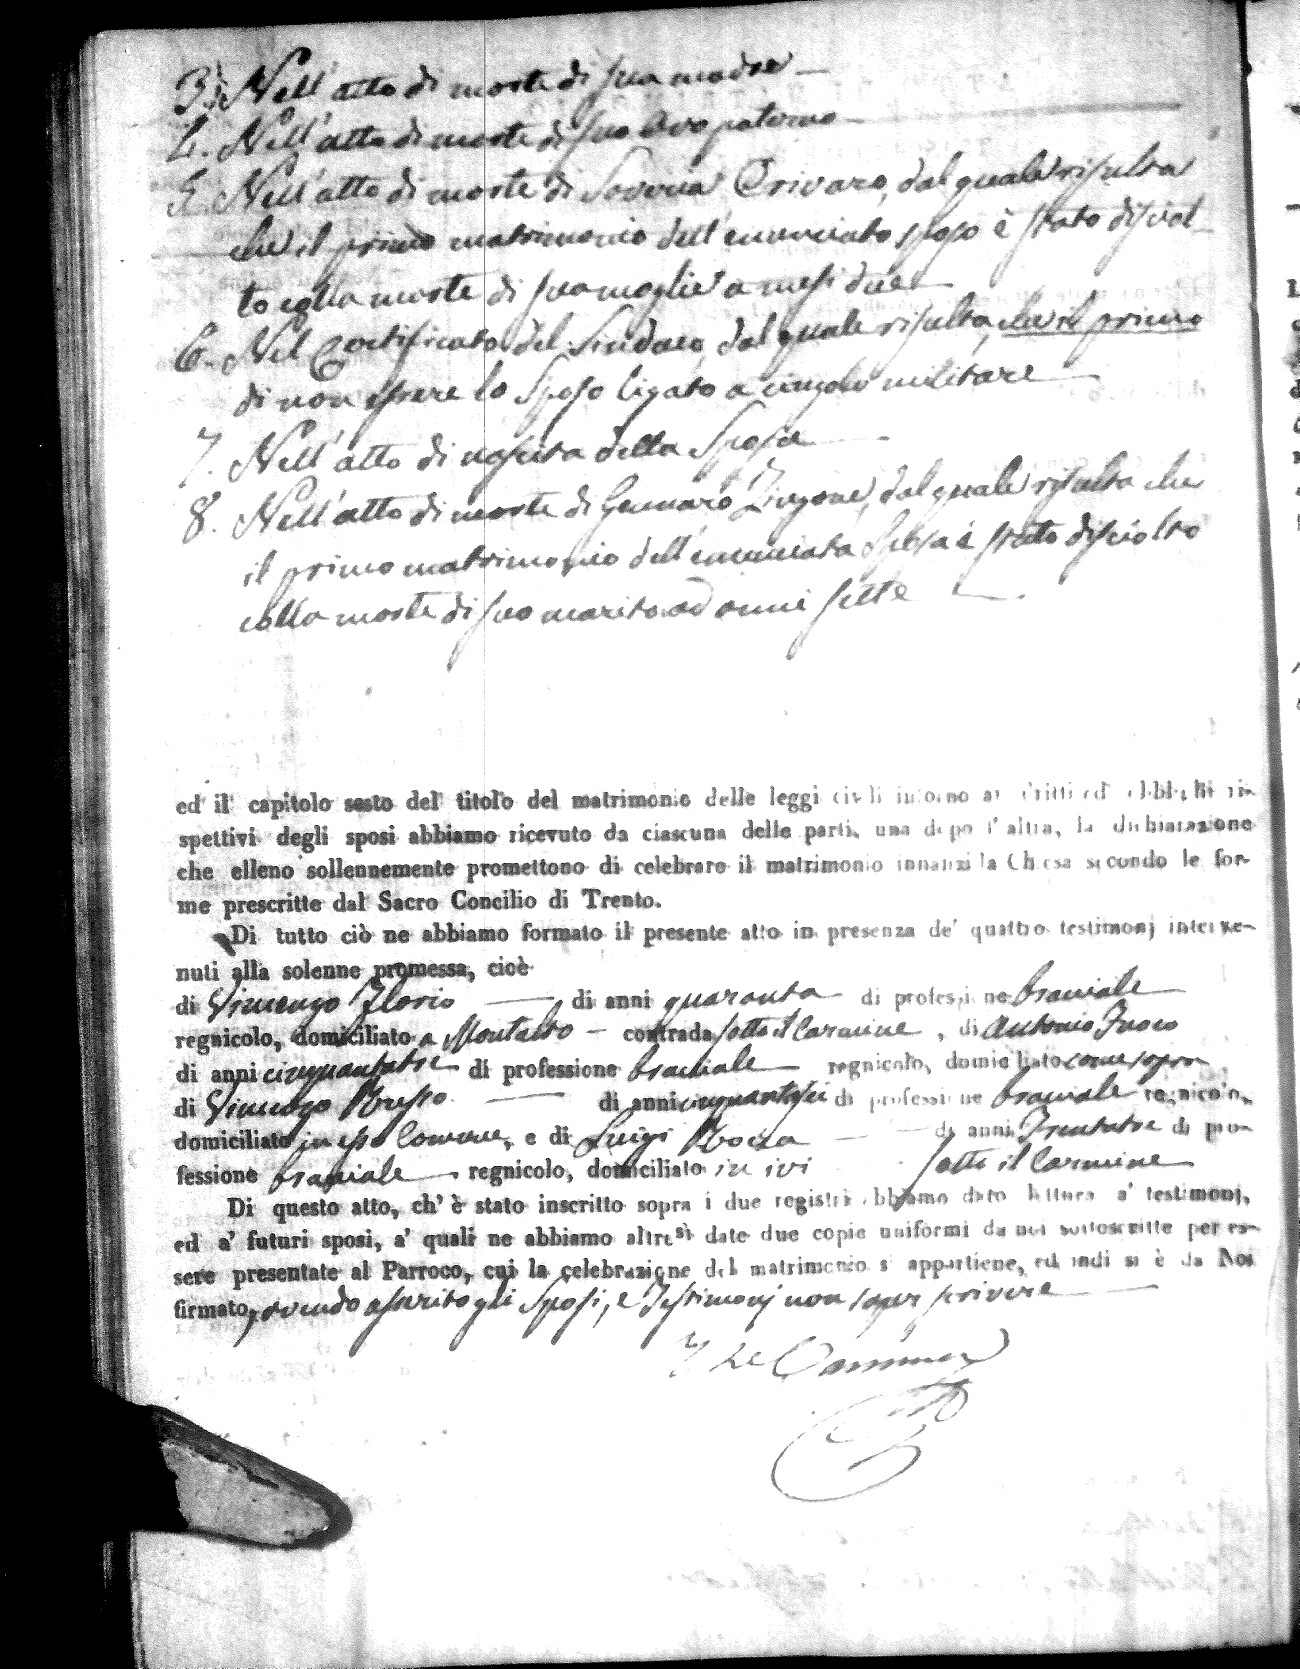 3. Nell'atto di morte di sua madre —
4. Nell'atto di morte di suo Avo paterno —
5. Nell'atto di morte di Saveria Crivaro, dal quale risulta
che il primo matrimonio dell'enunciato sposo è stato disciol-
to colla morte di sua moglie a mesi due —
6. Nel Certificato del Sindaco, dal quale risulta, che il primo
di non essere lo Sposo ligato a cingolo militare —
7. Nell'atto di nascita della Sposa —
8. Nell'atto di morte di Gennaro, dal quale risulta che
il primo matrimonio dell'enunciata Sposa è stato disciolto
colla morte di suo marito ad anni sette —
ed il capitolo sesto del titolo del matrimonio delle leggi civili intorno ai dritti ed obblighi ri-
spettivi degli sposi abbiamo ricevuto da ciascuna delle parti, una dopo l'altra, la dichiarazione
che elleno sollennemente promettono di celebrare il matrimonio innanzi la Chiesa secondo le for-
me prescritte dal Sacro Concilio di Trento.
Di tutto ciò ne abbiamo formato il presente atto in presenza de' quattro testimonj interve-
nuti alla solenne promessa, cioè
di Vincenzo Florio — di anni quaranta di professione bracciale
regnicolo, domiciliato a Montalto — contrada sotto il Carmine, di Antonio Fuoco
di anni cinquantatre di professione bracciale regnicolo, domiciliato come sopra
di Vincenzo Russo — di anni cinquantasei di professione bracciale regnicolo,
domiciliato in esso Comune, e di Luigi — di anni Trentatre di pro-
fessione bracciale regnicolo, domiciliato in ivi sotto il Carmine
Di questo atto, ch' è stato inscritto sopra i due registri abbiamo dato lettura a' testimonj,
ed a' futuri sposi, a' quali ne abbiamo altresì date due copie uniformi da noi sottoscritte per es-
sere presentate al Parroco, cui la celebrazione del matrimonio si appartiene, ed indi si è da Noi
firmato, avendo asserito gli Sposi, e Testimonj non saper scrivere —